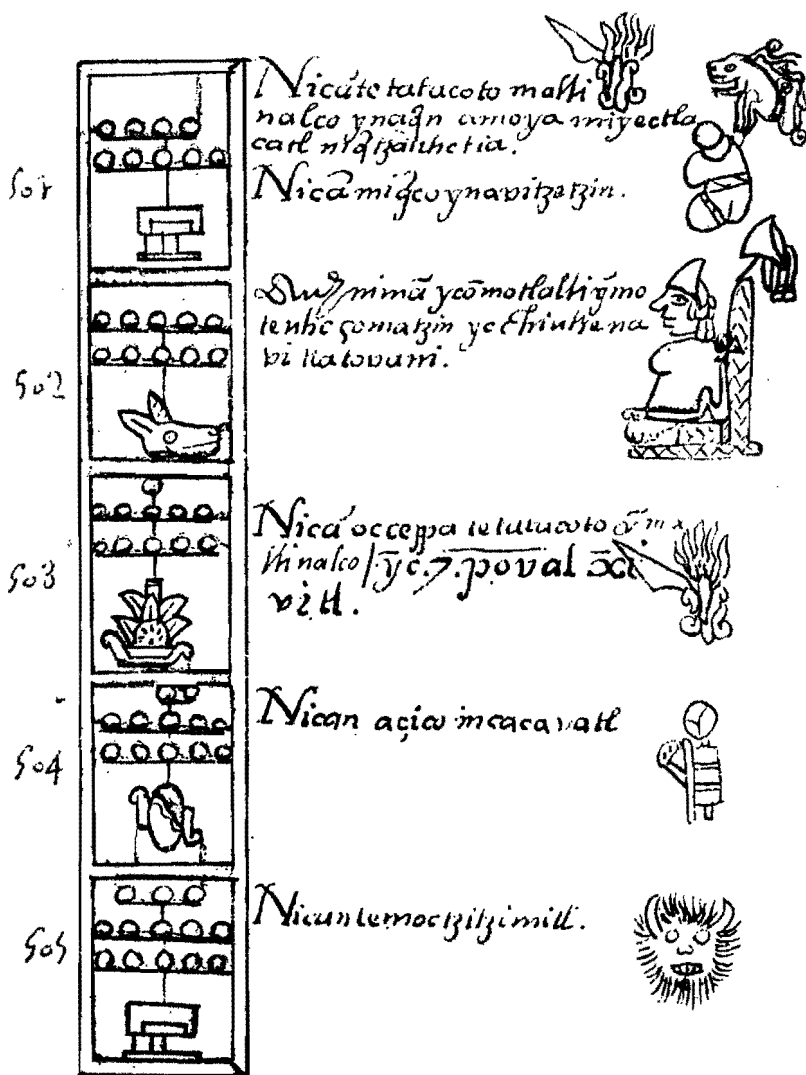 501
Nicā tetatacoto malli
nalco ynaq̄n amoya miyectla
catl nīq̄tzāuhctia.
Nicā miq̄co ynavitzetzin.
502
nimā ycōmotlalli ȳmo
tenhcçomatzin yc chiuhcna
vi tlatovani.
503
Nicā occeppa tetatacoto ȳma
llinalco yc.7.poval x̄i
vitl.
504
Nican açico incacavatl
505
Nican temoc tzitzimitl.